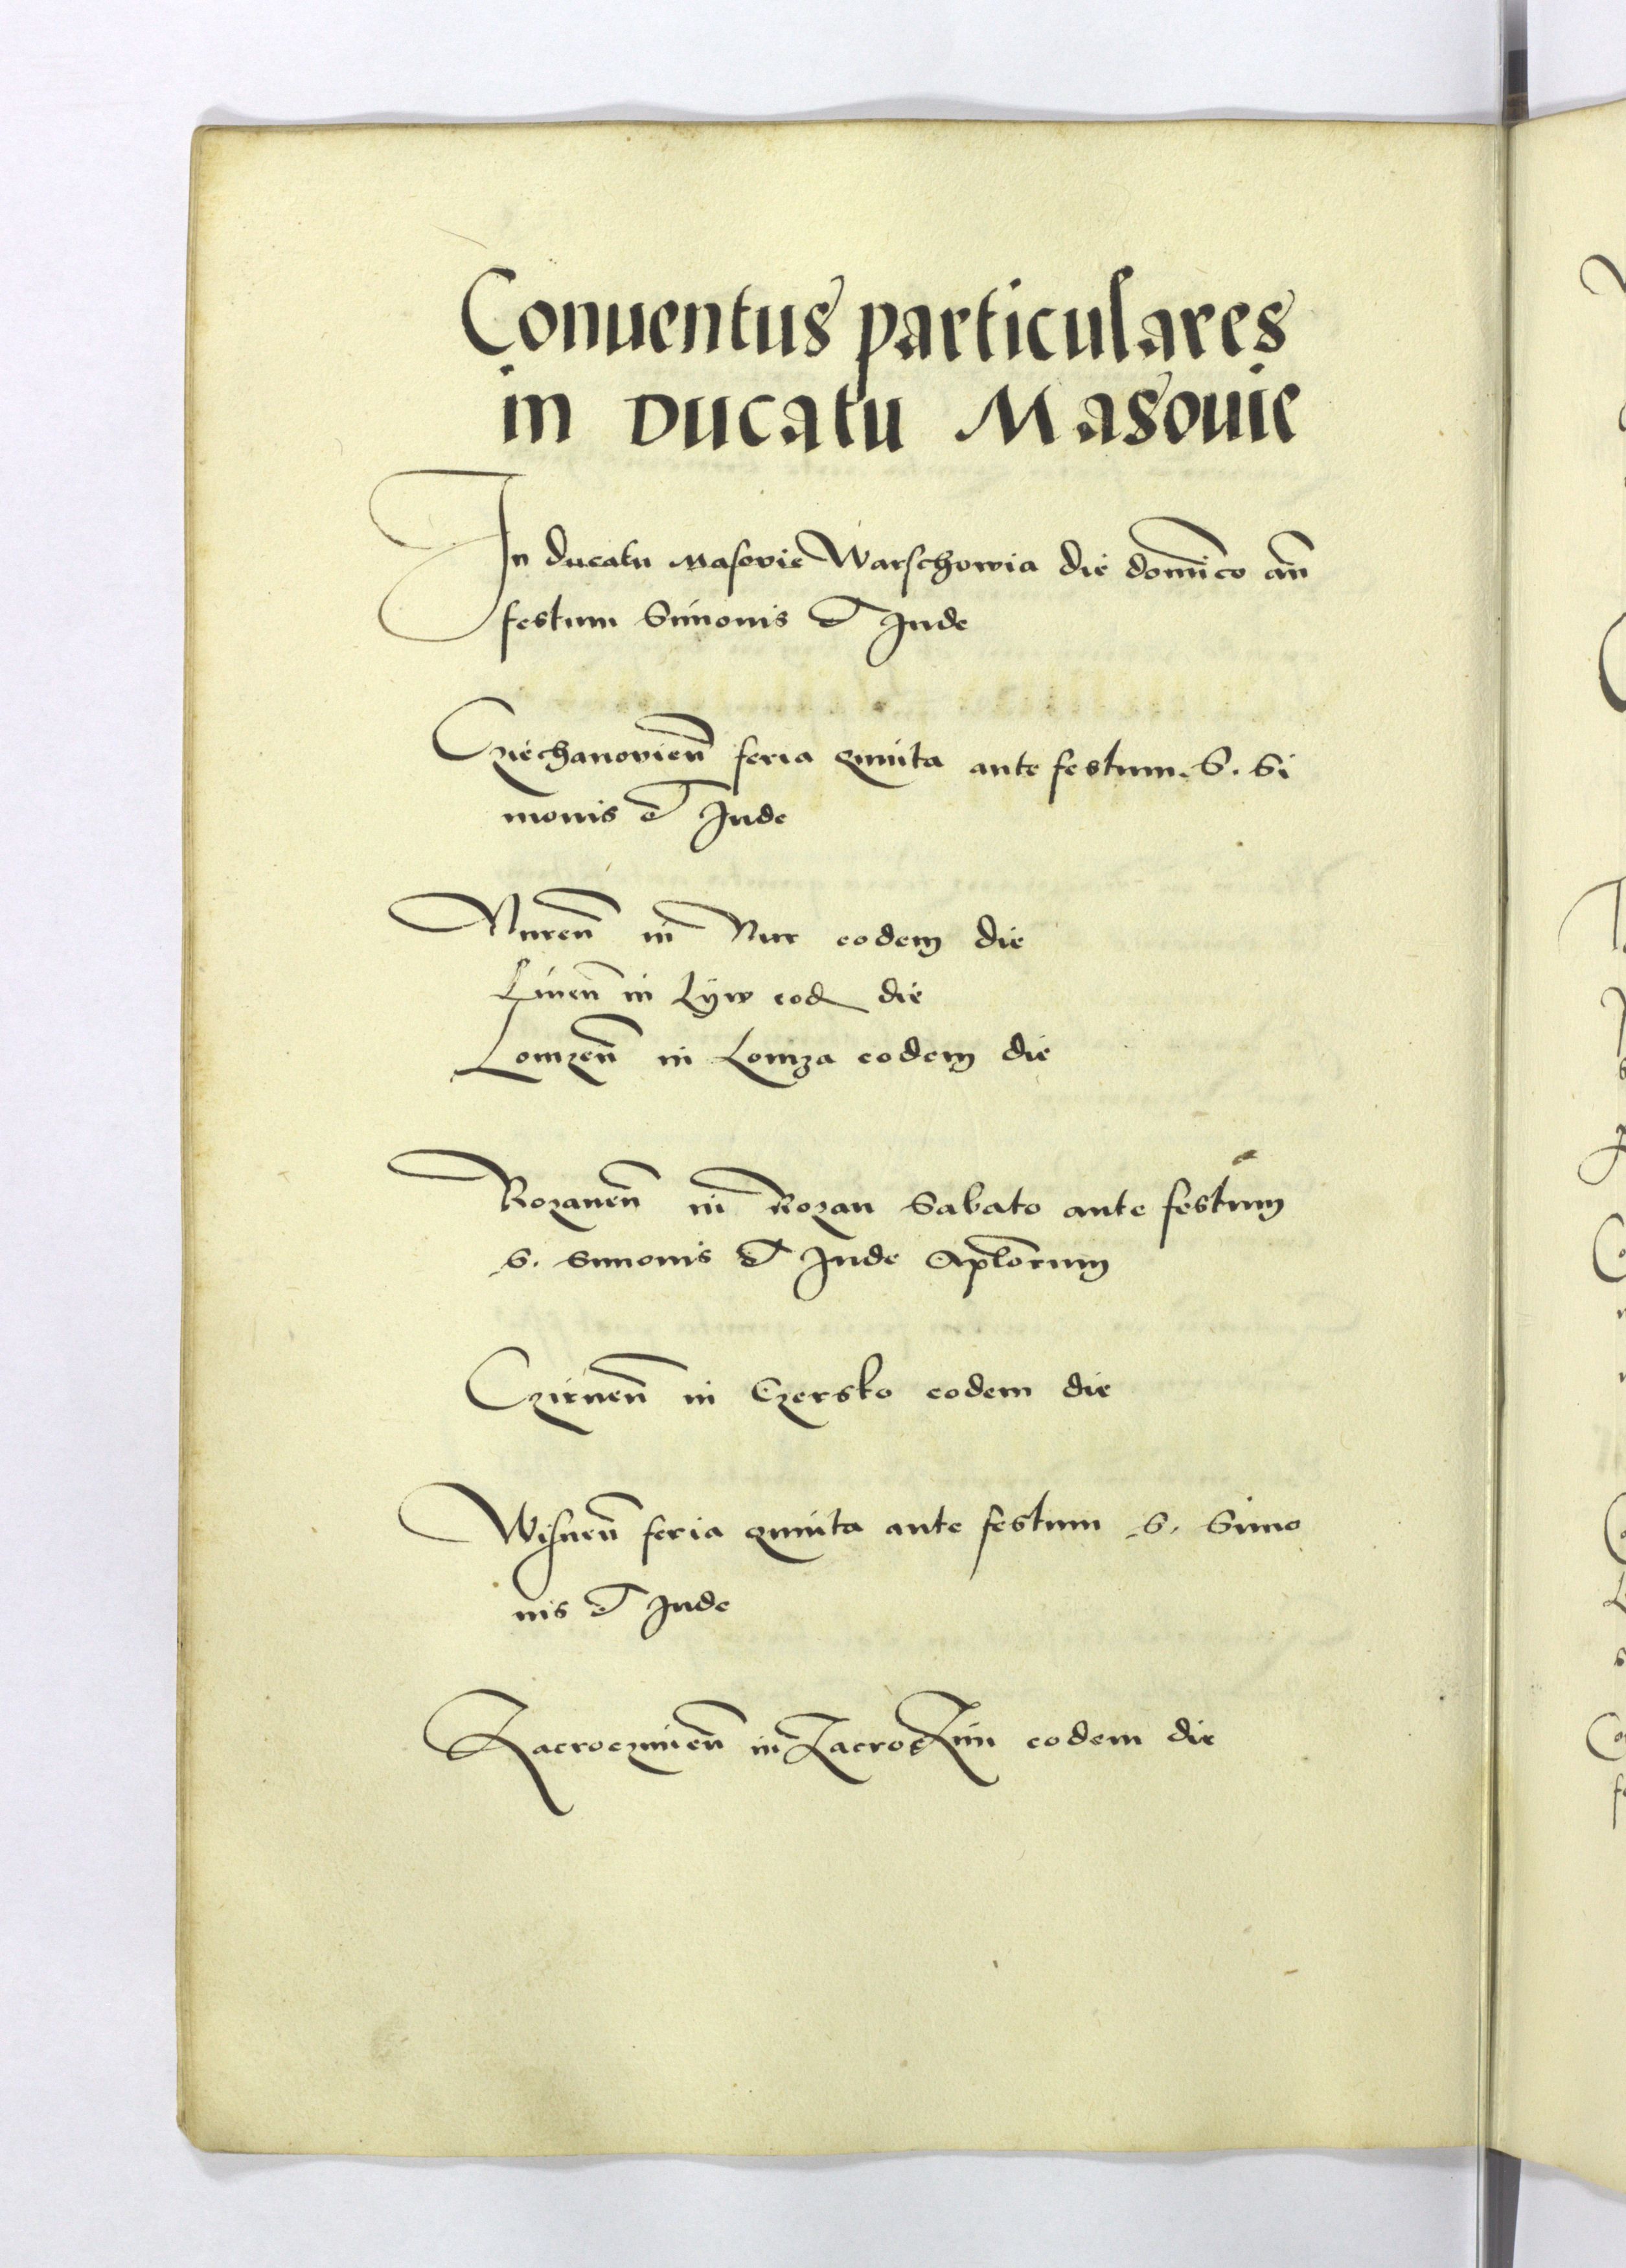 Conuentus particulares
in Ducatu Masouie
In ducatu Masovie Warschowia die domico an
festum Simonis et Jude
Cziechanovien feria quinta ante festum S. Si
monis et Jude
Nuren in Nur eodem die
Liuen in Lyw eod die
Lomzen in Lomza eodem die
Rozanen in Rozan Sabato ante festum
S. Simonis et Jude Aplorum
Czirnen in Czersko eodem die
Wisnen feria quinta ante festum S. Simo
nis et Jude
Zacroczimien in Zacroczim eodem die